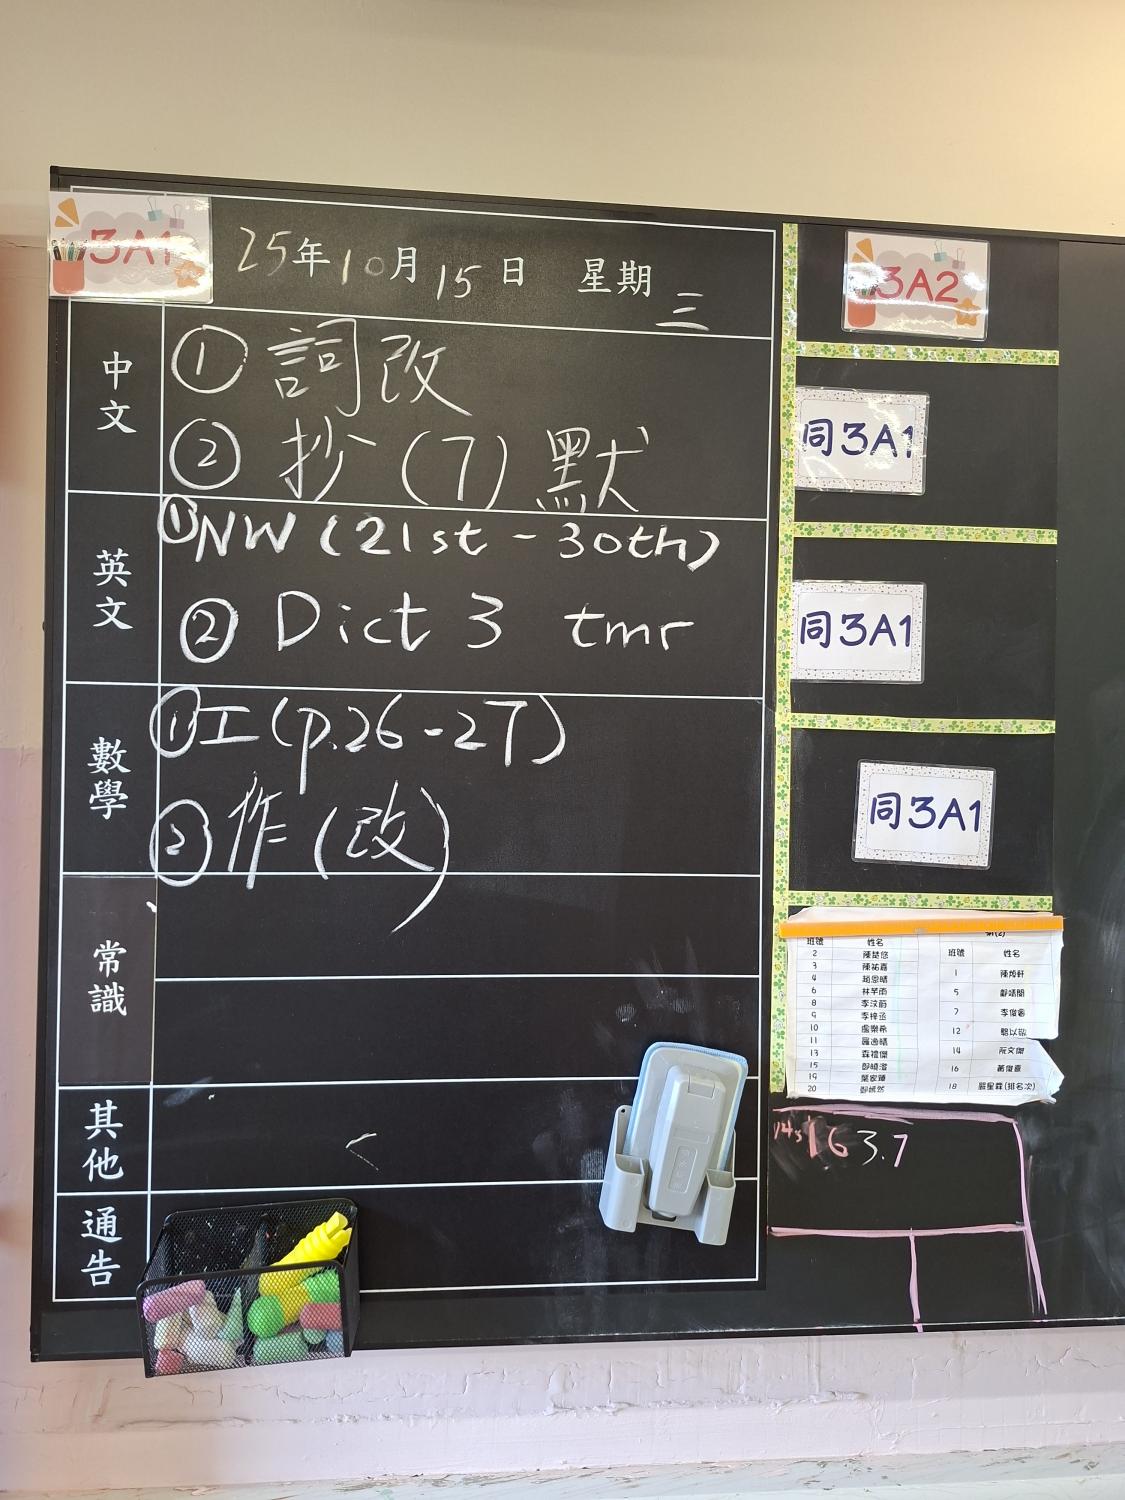 3A1
25年10月15日 星期三
中文
① 詞改
② 抄(7)默
英文
① NW (21st - 30th)
② Dict 3 tmr
數學
① 工(p.26-27)
② 作(改)
常識
其他
通告
3A2
同3A1
同3A1
同3A1
班號 姓名
2 陳楚悠
3 陳祐嘉
4 趙恩晴
6 林芊雨
8 李汶蔚
9 李梓丞
10 盧樂希
11 羅逸晴
13 森禮傑
15
19 葉家臻
20
班號 姓名
1
5
7
12
14 阮文傑
16 黃俊熹
18 嚴星霖(排名次)
16 3.7